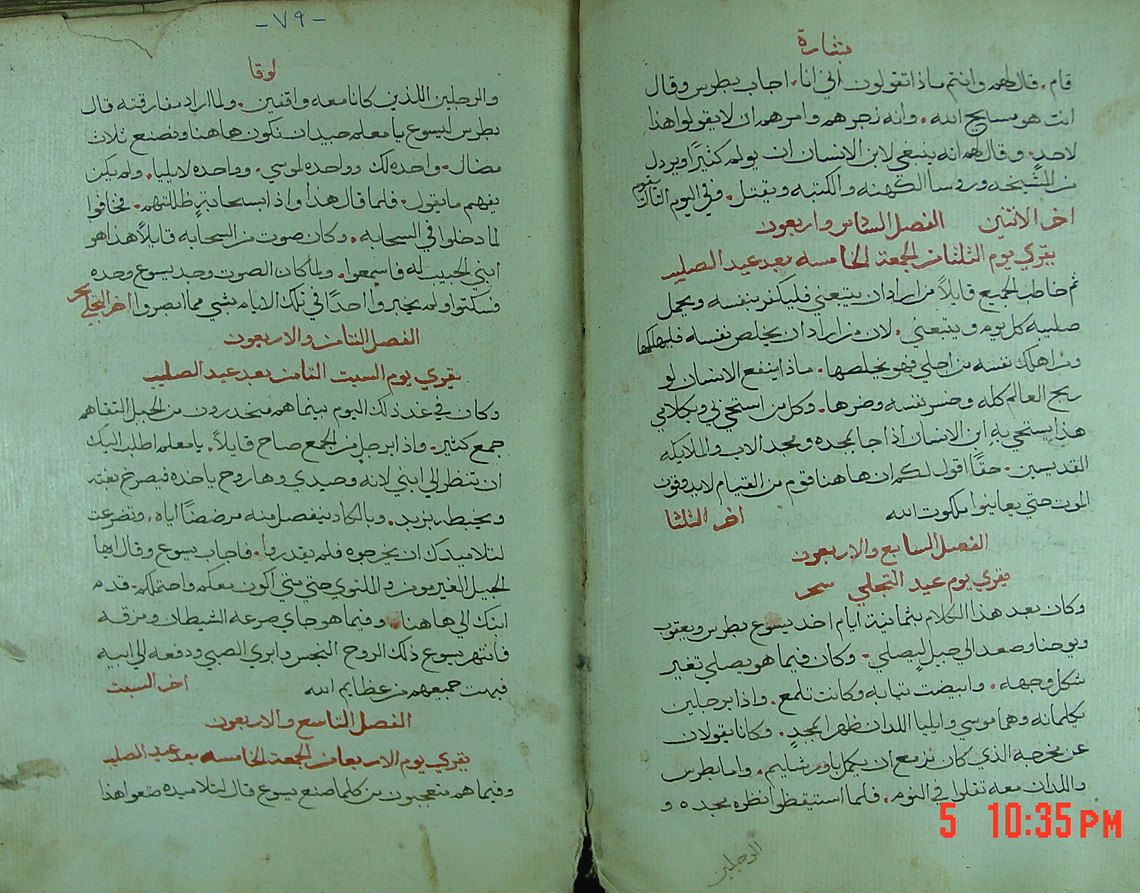 بشارة
قام. قال لهم وانتم ماذا تقولون اني انا. اجاب بطرس وقال
انت هو مسايح الله. وانه زجرهم وامرهم ان لا يقولوا هذا
لاحدٍ. وقال لهم انه ينبغي لابن الانسان ان يولم كثيرًا ويرذل
من الشيخه وروسا الكهنه والكتبه ويقتل. وفي اليوم الثالث يقوم
اخر الاثنين الفصل السادس واربعون
يقري يوم الثلثا من الجمعة الخامسه بعد عيد الصليب
ثم خاطب الجميع قايلاً من اراد ان يتبعني فليكفر بنفسه ويحمل
صليبه كل يوم ويتبعني. لان من اراد ان يخلص نفسه فليهلكها
ومن اهلك نفسه من اجلي فهو يخلصها. ماذا ينفع الانسان لو
ربح العالم كله وخسر نفسه وضرها. وكل من استحى بي وبكلامي
هذا يستحي به ابن الانسان اذا جا بمجده ومجد الاب والملايكه
المقديسين. حقًا اقول لكم ان هاهنا قوم من القيام لا يدوقون
الموت حتى يعاينوا ملكوت الله اخر الثلثا
الفصل السابع والاربعون
يقري يوم عيد التجلي سحر
وكان بعد هذا الكلام بثمانية ايام اخد يسوع بطرس ويعقوب
ويوحنا وصعد الي جبل ليصلي. وكان فيما هو يصلي تغير
شكل وجهه. وابيضت ثيابه وكانت تلمع. واذا برجلين
يكلمانه وهما موسي وايليا اللدان ظهرا بمجدٍ. وكانا يقولان
عن مخرجه الذي كان مزمع ان يكمل باورشليم. واما بطرس
واللدان معه ثقلوا في النوم. فلما استيقظوا نظروه بمجده و
الرجلين
-٧٩-
لوقا
والرجلين اللذين كانا معه واقفين. ولما اراد مفارقته قال
بطرس ليسوع يا معلم جيد ان نكون هاهنا ونصنع ثلات
مضال. واحده لك وواحده لموسي. وواحده لايليا. ولم يكن
يفهم ما يقول. فلما قال هذا واذا بسحابةٍ ظللتهم. فخافوا
لما دخلوا في السحابه. وكان صوت من السحابه قايلاً هذا هو
ابني الحبيب له فاسمعوا. ولما كان الصوت وجد يسوع وحده
فسكتوا ولم يخبروا احدًا في تلك الايام بشي مما ابصروا اخر التجلي سحر
الفصل الثامن والاربعون
يقري يوم السبت الثامن بعد عيد الصليب
وكان في غد ذلك اليوم بينما هم منحدرون من الجبل التقاهم
جمع كثير. واذا برجل من الجمع صاح قايلاً. يا معلم اطلب اليك
ان تنظر الي ابني لانه وحيدي وها روح ياخده فيصرخ بغته
ويخبطه بزبد. وبالكاد ينفصل منه مرضضًا اياه. وتضرعت
لتلاميدك ان يخرجوه فلم يقدروا. فاجاب يسوع وقال ايها
الجيل الغير مومن والملتوي حتى متى اكون معكم واحتملكم. قدم
ابنك الي هاهنا. وفيما هو جاي صرعه الشيطان ومزقه
فانتهر يسوع ذلك الروح النجس وابري الصبي ودفعه الي ابيه
فبهت جميعهم من عظايم الله اخر السبت
الفصل التاسع والاربعون
يقري يوم الاربعا من الجمعة الخامسه بعد عيد الصليب
وفيما هم متعجبون من كلما صنع يسوع قال لتلاميده ضعوا هذا
5 10:35 PM